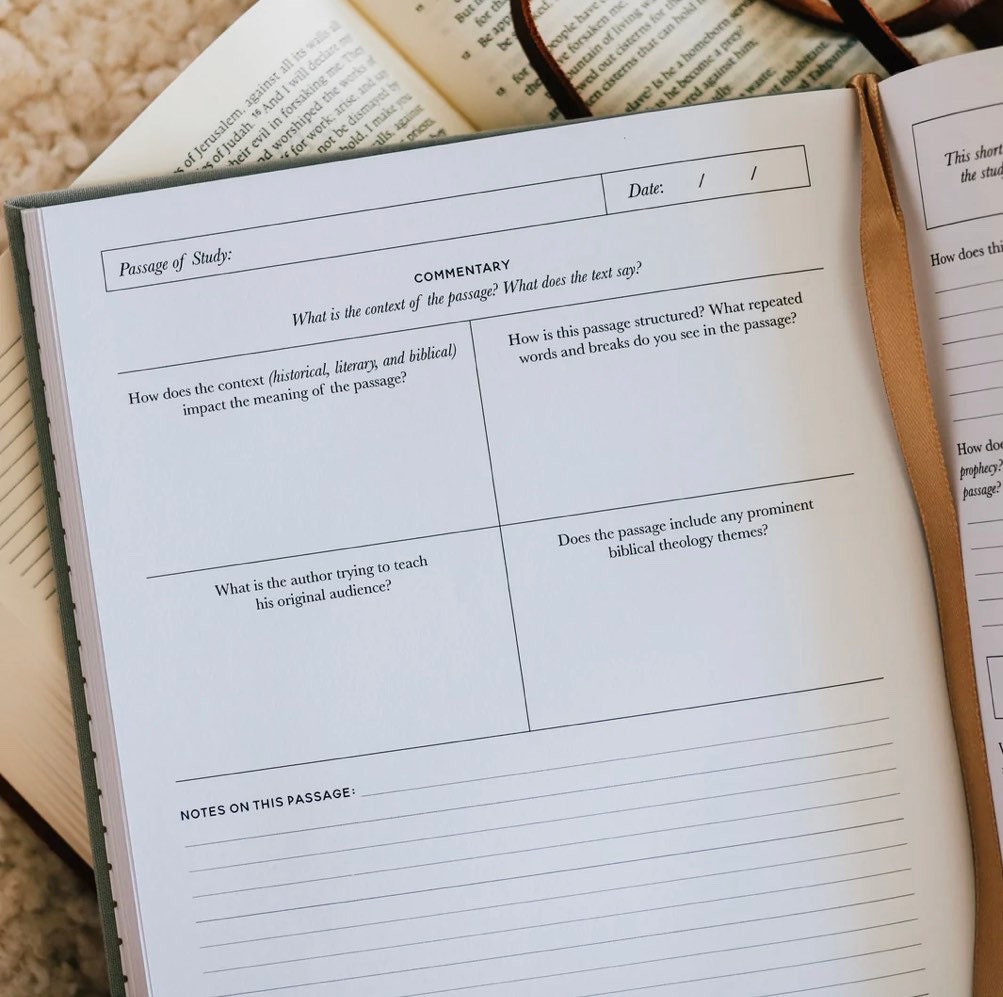 of Jerusalem, against all its walls all
of Judah. 16 And I will declare my
their evil in forsaking me. They
and worshiped the works of
for work; arise, and say
not be dismayed by
hold, I make you
walls, against
But
for th
Be app
be
people have
forsaken me,
fountain of living w
out cisterns for the
cisterns that can hold
slave? Is he a homeborn serv
he become a prey?
against him,
waste,
inhabitant.
and Tahpanhes
Passage of Study:
Date: / /
COMMENTARY
What is the context of the passage? What does the text say?
How does the context (historical, literary, and biblical)
impact the meaning of the passage?
How is this passage structured? What repeated
words and breaks do you see in the passage?
What is the author trying to teach
his original audience?
Does the passage include any prominent
biblical theology themes?
NOTES ON THIS PASSAGE:
This short
the stud
How does thi
How doe
prophecy?
passage?